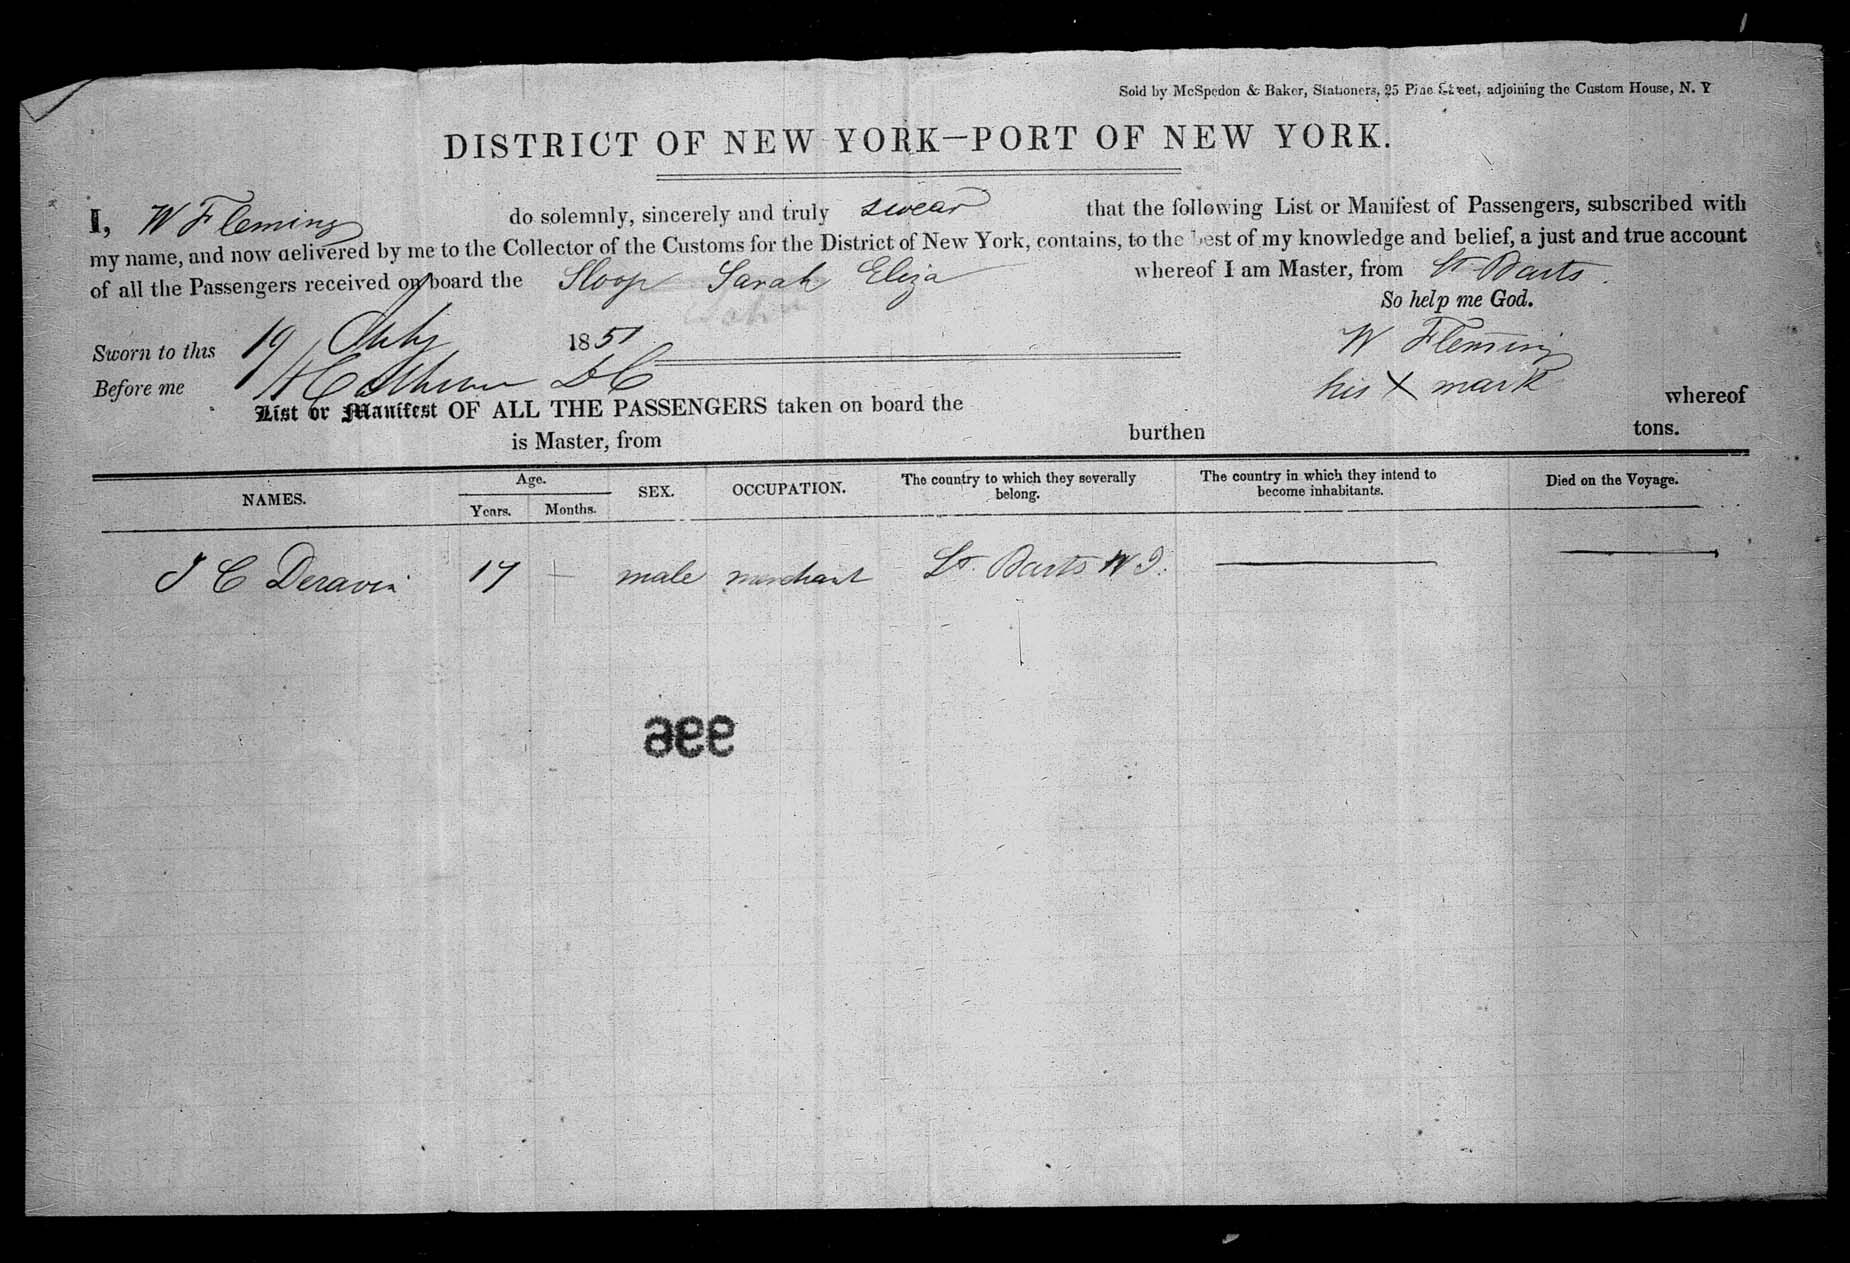 Sold by McSpedon & Baker, Stationers, 25 Pine Street, adjoining the Custom House, N. Y
DISTRICT OF NEW YORK—PORT OF NEW YORK.
I, W Fleming do solemnly, sincerely and truly swear that the following List or Manifest of Passengers, subscribed with
my name, and now delivered by me to the Collector of the Customs for the District of New York, contains, to the best of my knowledge and belief, a just and true account
of all the Passengers received on board the Sloop Sarah Eliza whereof I am Master, from St Barts.
So help me God.
Sworn to this 19 July 1851 W Fleming
Before me his X mark
List or Manifest OF ALL THE PASSENGERS taken on board the whereof
is Master, from burthen tons.
NAMES. Age. Years. Months. SEX. OCCUPATION. The country to which they severally belong. The country in which they intend to become inhabitants. Died on the Voyage.
J C 17 — male merchant St. Barts W I. — —